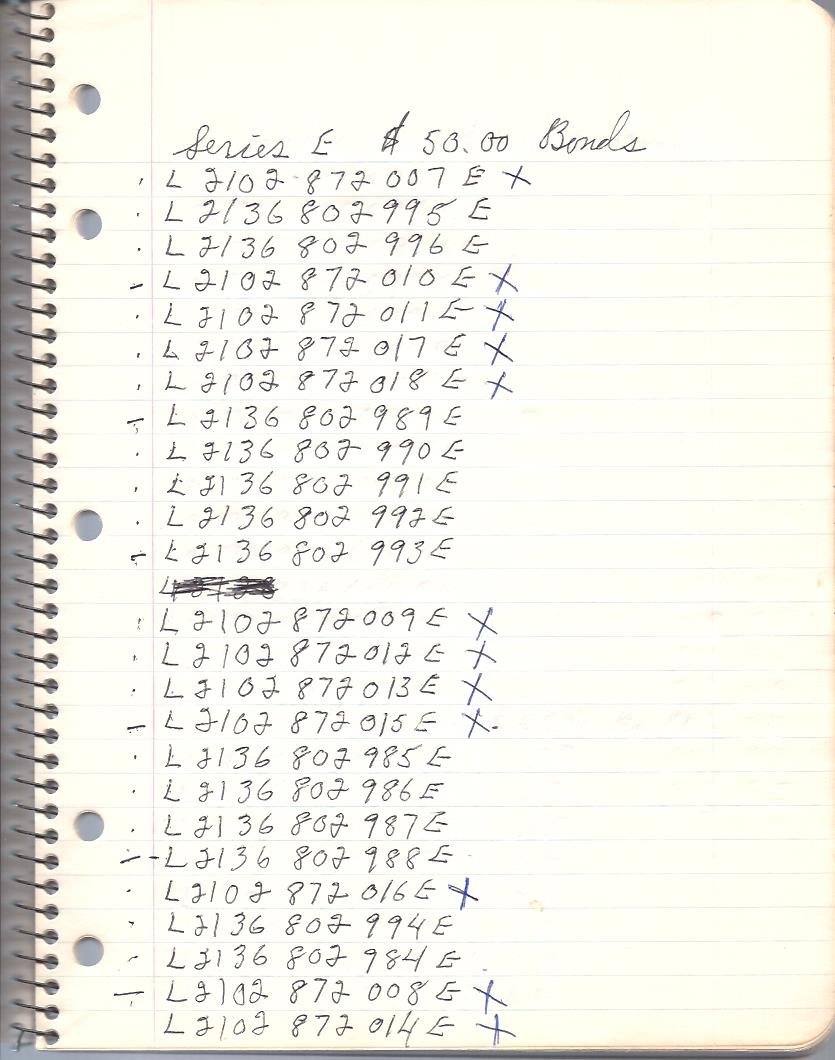 Series E $50.00 Bonds
L 2102 872 007 E X
L 2136 802 995 E
L 2136 802 996 E
L 2102 872 010 E X
L 2102 872 011 E X
L 2102 872 017 E X
L 2102 872 018 E X
L 2136 802 989 E
L 2136 802 990 E
L 2136 802 991 E
L 2136 802 992 E
L 2136 802 993 E
L 2102 872 009 E X
L 2102 872 012 E X
L 2102 872 013 E X
L 2102 872 015 E X
L 2136 802 985 E
L 2136 802 986 E
L 2136 802 987 E
L 2136 802 988 E
L 2102 872 016 E X
L 2136 802 994 E
L 2136 802 984 E
L 2102 872 008 E X
L 2102 872 014 E X